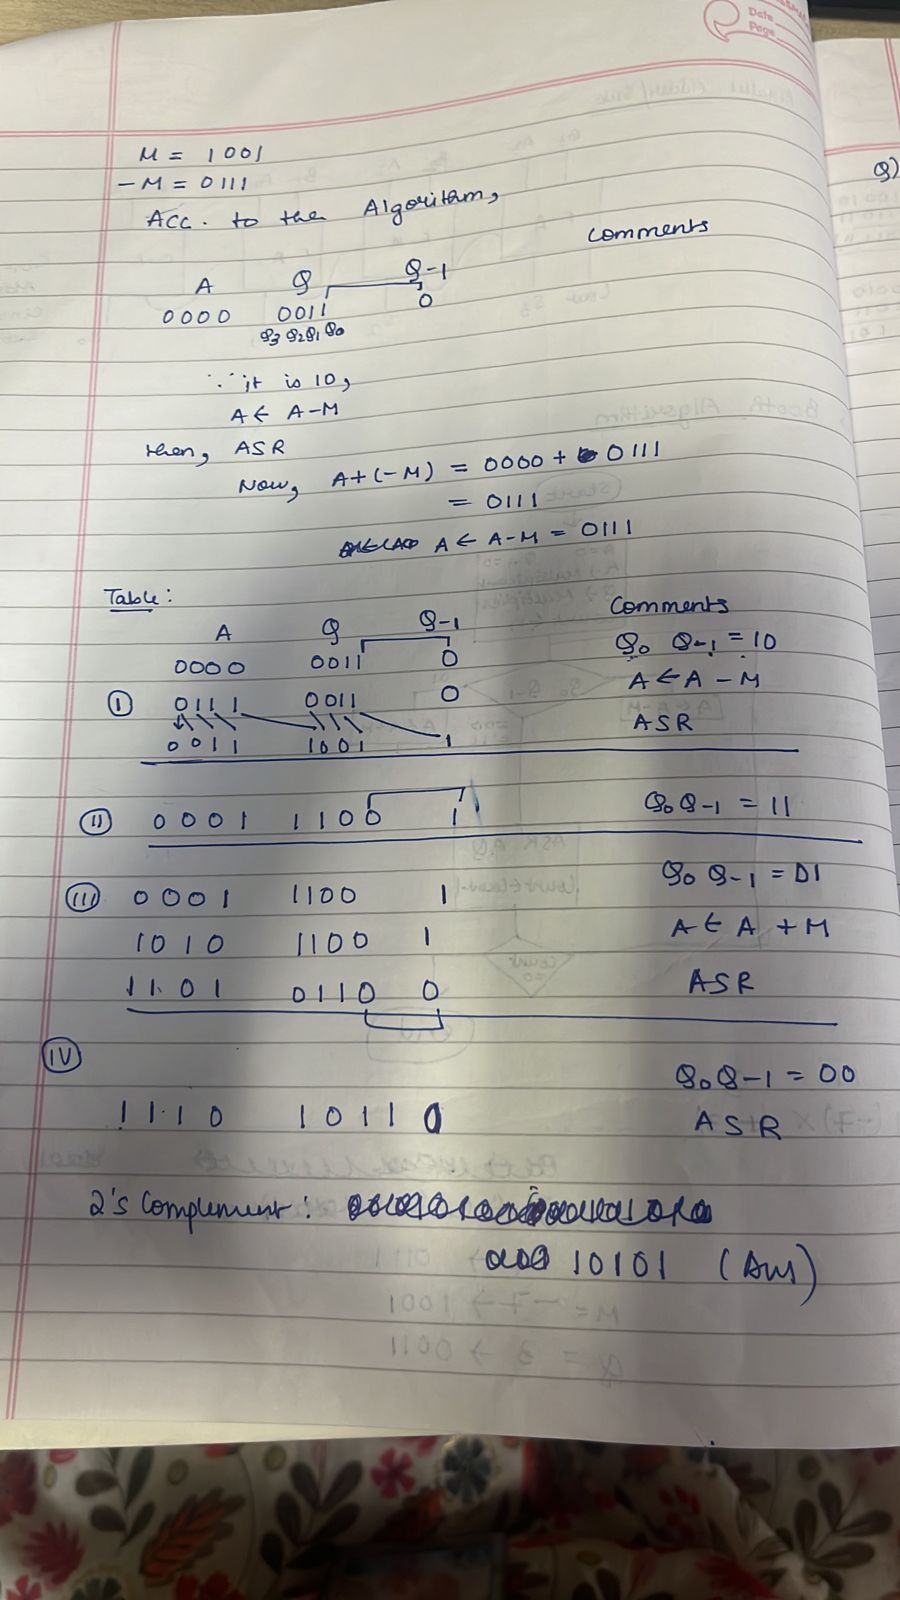 Date
Page
M = 1001
-M = 0111
Acc. to the Algorithm,
Comments
A Q Q-1
0000 0011 0
Q3 Q2 Q1 Q0
∵ it is 10,
A ← A-M
then, ASR
Now, A+(-M) = 0000 + 0111
= 0111
A ← A-M = 0111
Table:
A Q Q-1 Comments
0000 0011 0 Q0 Q-1 = 10
I 0111 0011 0 A ← A - M
0011 1001 1 ASR
II 0001 1100 1 Q0Q-1 = 11
III 0001 1100 1 Q0 Q-1 = 01
1010 1100 1 A ← A + M
1101 0110 0 ASR
IV
Q0Q-1 = 00
1110 1011 0 ASR
2's Complement:
10101 (Ans)
Q)